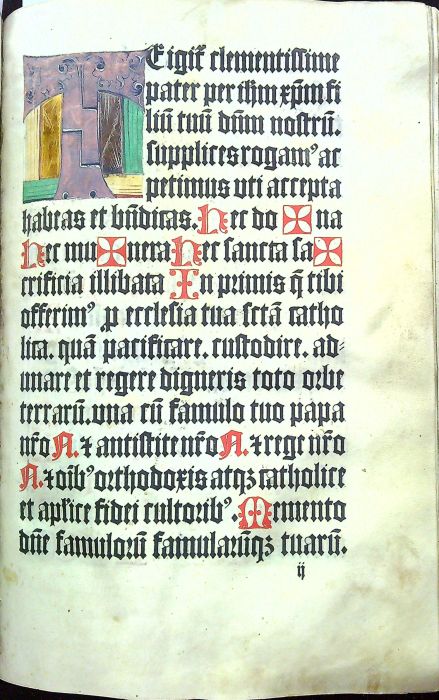 TE igit᷑ clementissime
pater per ihm̄ xp̄m fi
liū tuū dn̄m nostrū.
supplices rogamꝰ ac
petimus vti accepta
habeas et bn̄dicas. Hec do ✠ na
Hec mu ✠ nera Hec sancta sa ✠
crificia illibata In primis q̄ tibi
offerimꝰ ꝓ ecclesia tua sctā catho
lica. quā pacificare. custodire. ad⸗
unare et regere digneris toto orbe
terrarū. vna cū famulo tuo papa
nr̄o N. ⁊ antistite nr̄o N. ⁊ rege nr̄o
N. ⁊ oīb᾽ orthodoxis atqꝫ catholice
et apl̄ice fidei cultorib᾽. Memento
dn̄e famulorū famularūqꝫ tuarū.
ij